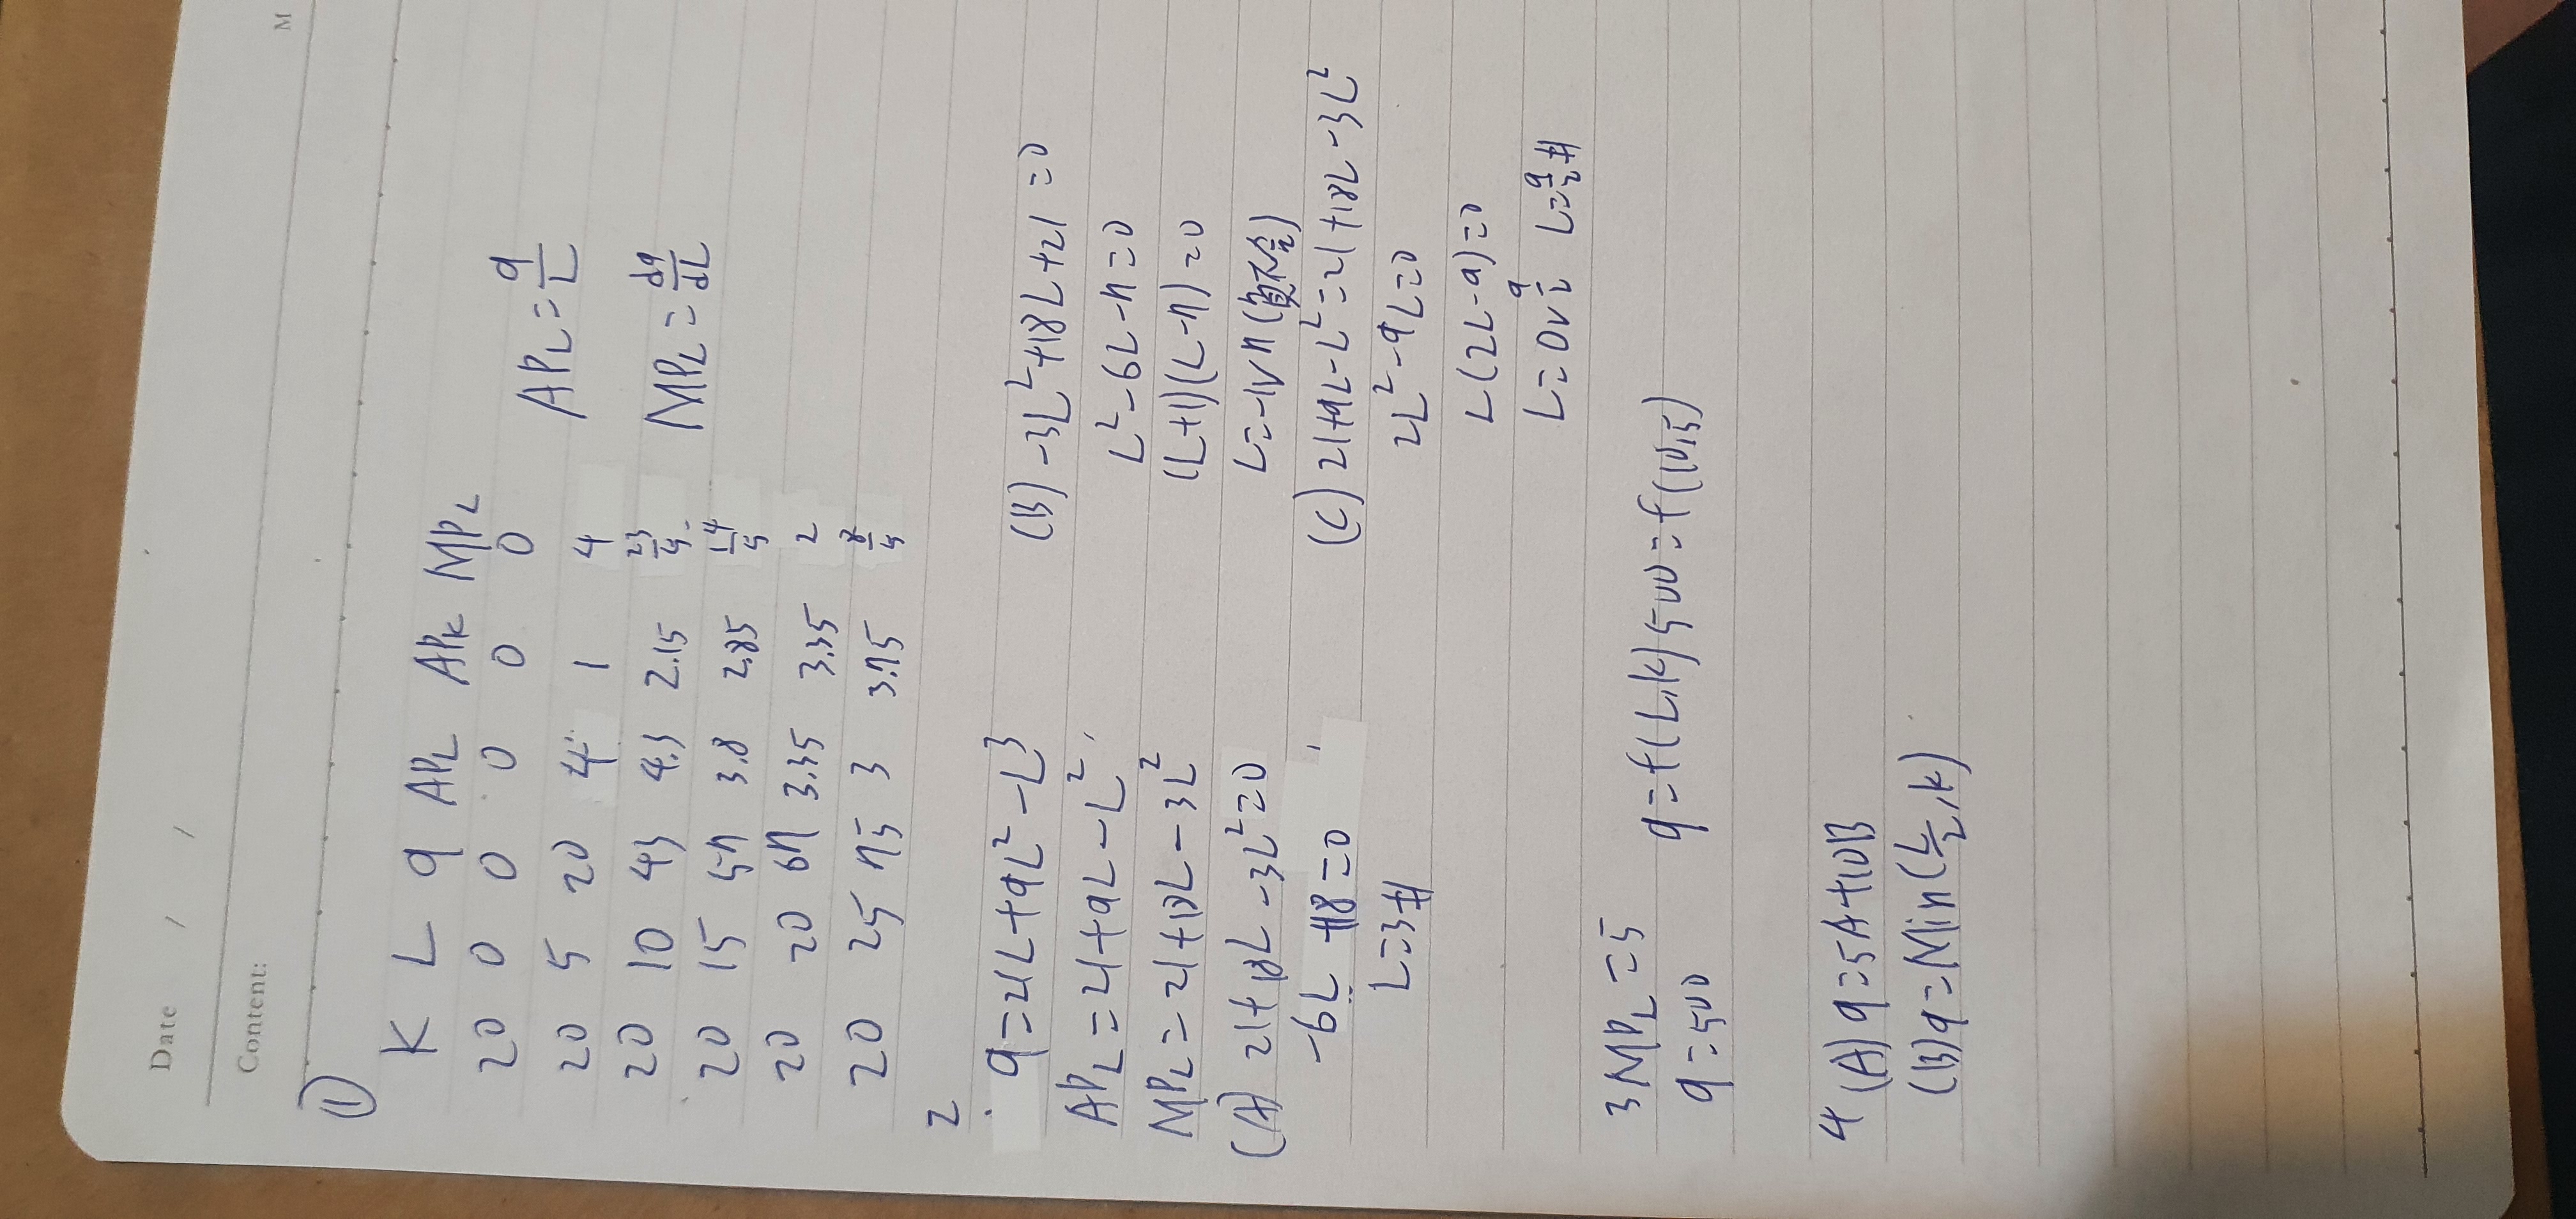 Date / /
Content:
M
①
K L q APL APK MPL
20 0 0 0 0 0
20 5 20 4 1 4
20 10 43 4.3 2.15 23/5
20 15 57 3.8 2.85 14/5
20 20 67 3.35 3.35 2
20 25 75 3 3.75 8/5
APL = q/L
MPL = dq/dL
2
q=21L+9L²-L³
APL=21+9L-L²
MPL=21+18L-3L²
(A) 21+18L-3L²=0
-6L +18=0
L=3#
(B) -3L²+18L+21=0
L²-6L-7=0
(L+1)(L-7)=0
L=-1∨7 (負不合)
(C) 21+9L-L²=21+18L-3L²
2L²-9L=0
L(2L-9)=0
L=0∨9/2 L=9/2#
3 MPL=5
q=500 q=f(L,k) 500=f(10,5)
4 (A) q=5A+10B
(B) q=Min(L/2,k)